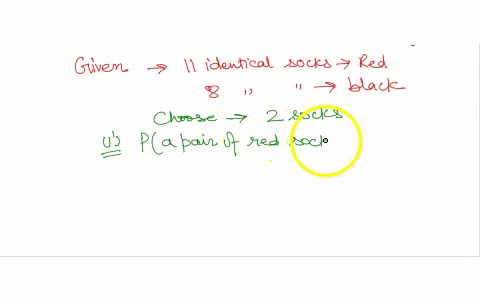 Given → 11 identical socks → Red
8 " " → black
Choose → 2 socks
(i) P(a pair of red sock